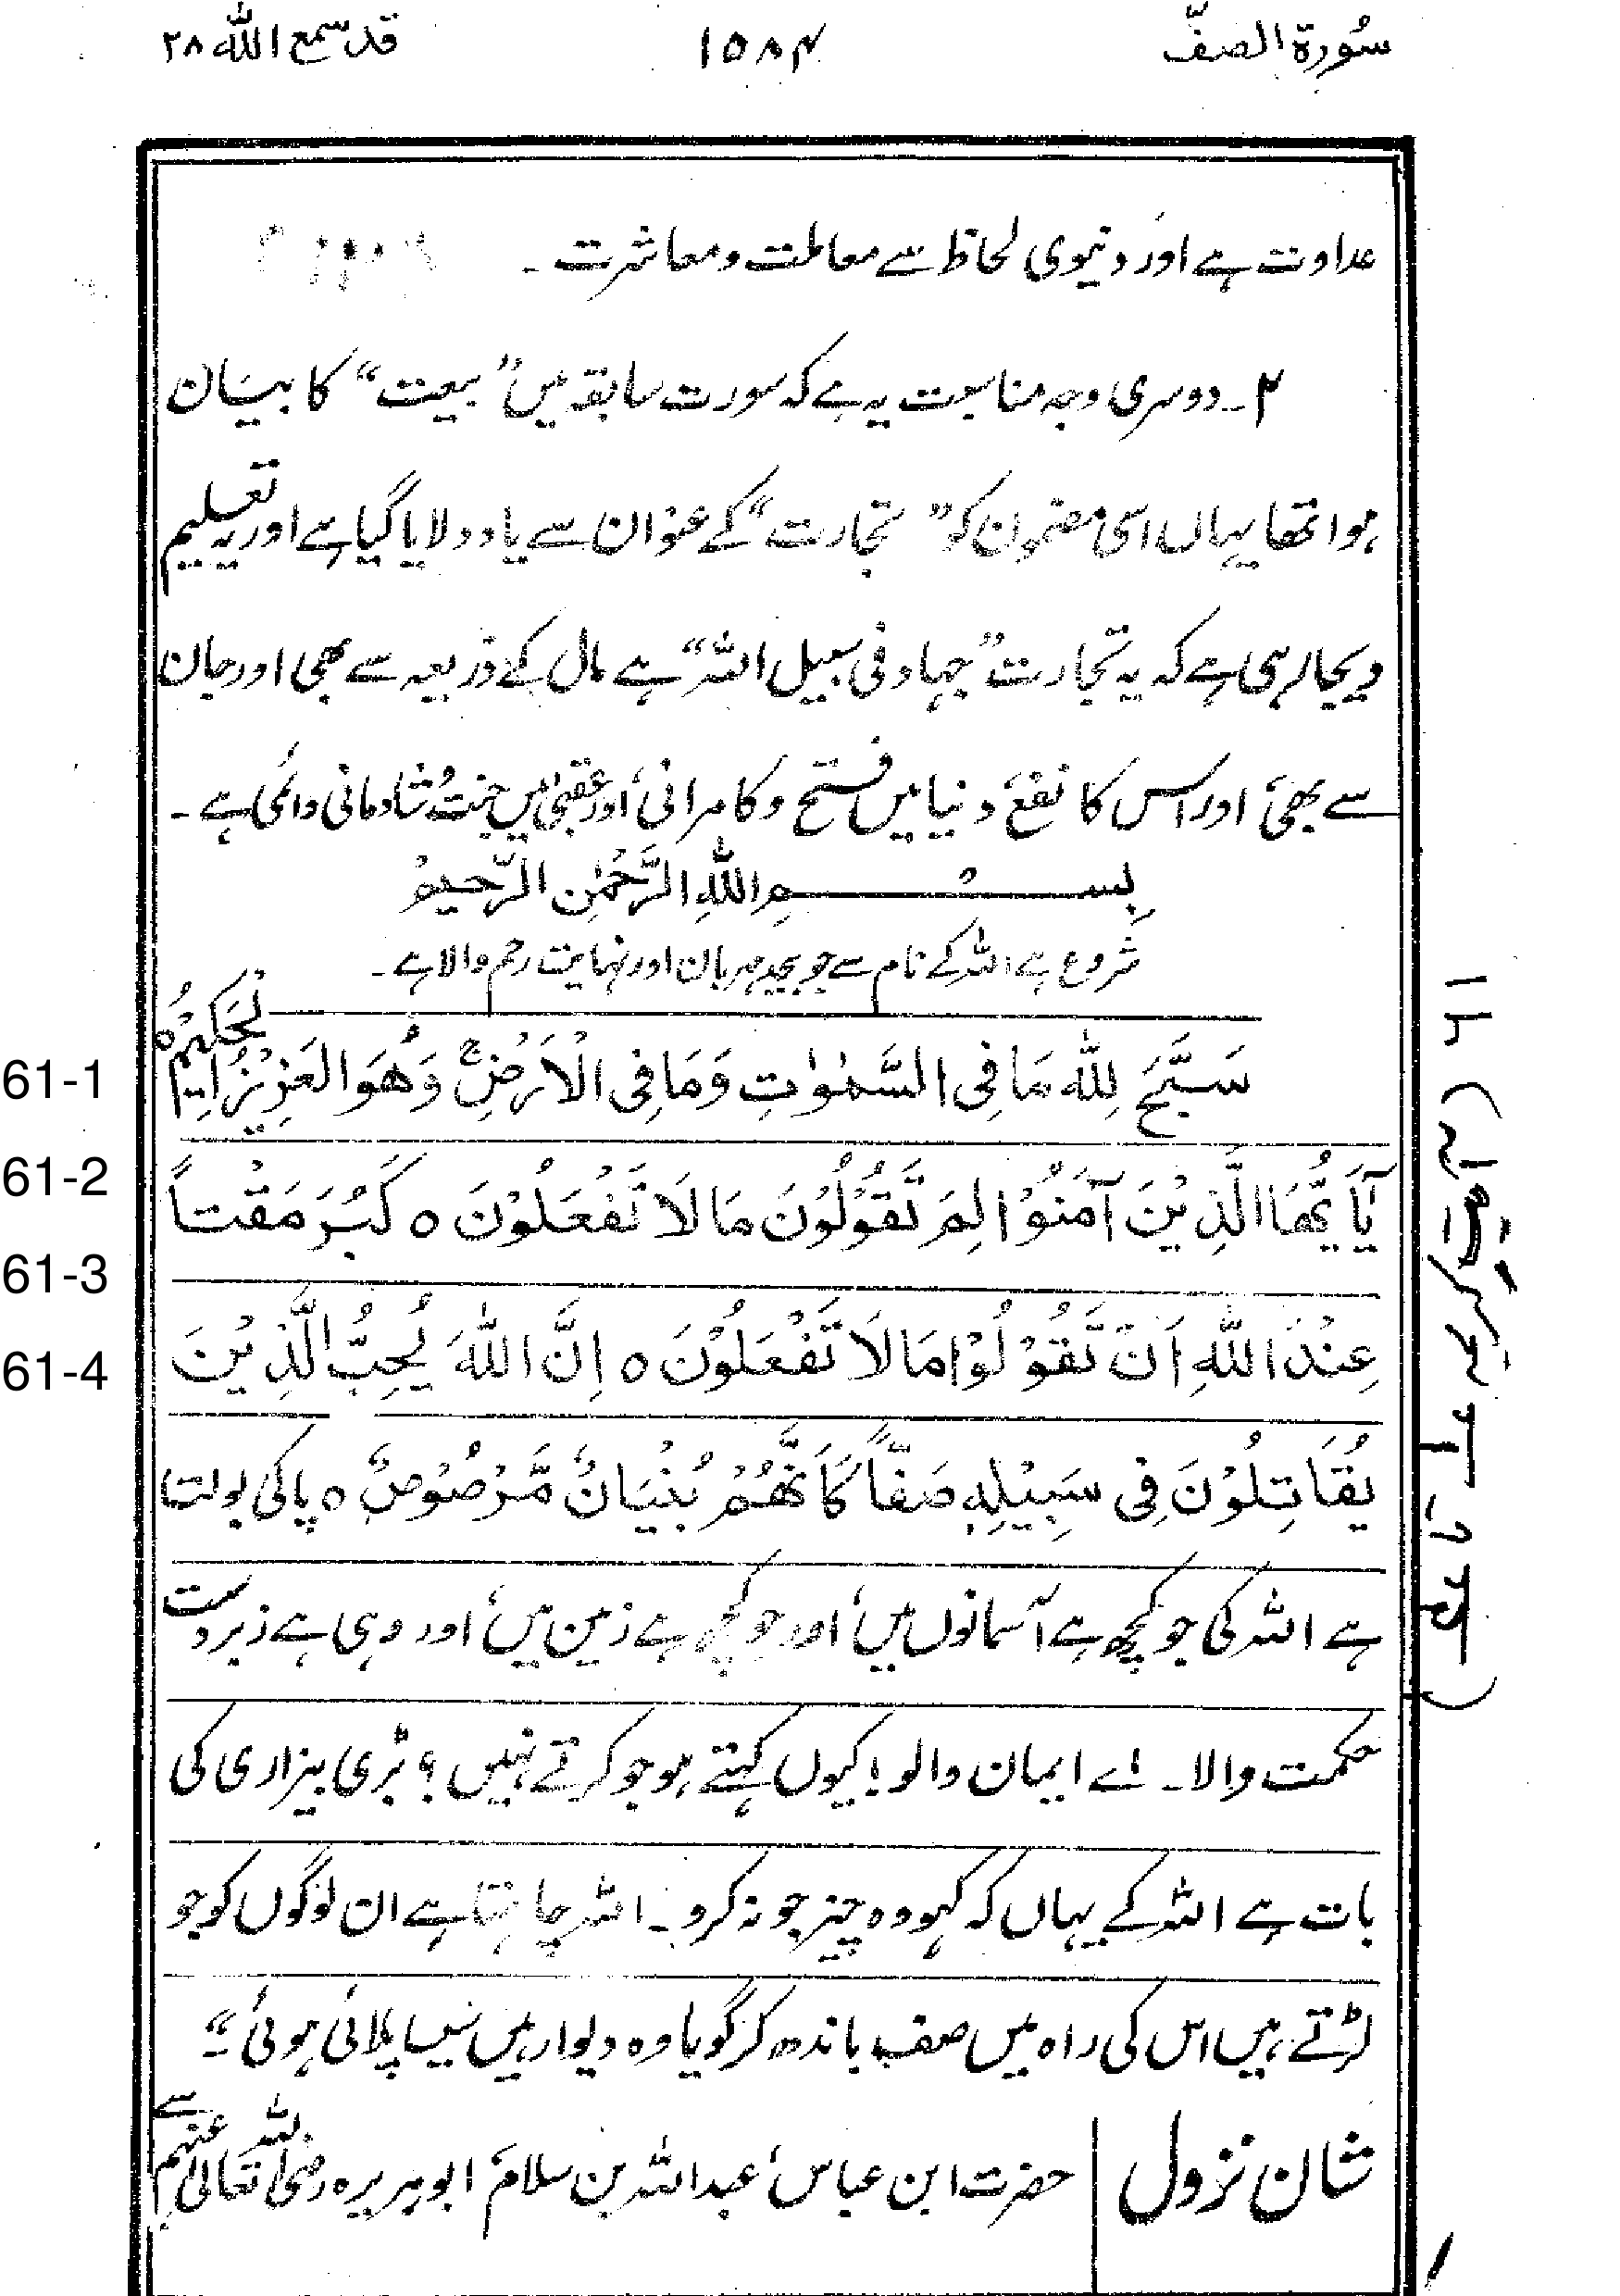 سُورة الصفّ ۱۵۸۴ قد سمع الله ۲۸
عداوت ہے اور دنیوی لحاظ سے معاملت و معاشرت ۔
۲ ۔ دوسری وجہ مناسبت یہ ہے کہ سورت سابقہ میں ”بیعت“ کا بیان
ہوا تھا یہاں اسی مضمون کو ”تجارت“ کے عنوان سے یاد دلایا گیا ہے اور یہ تعلیم
دیجا رہی ہے کہ یہ تجارت ”جہاد فی سبیل اللہ“ ہے مال کے ذریعہ سے بھی اور جان
سے بھی، اور اس کا نفع دنیا میں فتح و کامرانی، اور عقبیٰ میں جنت و شادمانی دائمی ہے ۔
بِسْمِ اللهِ الرَّحْمٰنِ الرَّحِيمْ
شروع ہے اللہ کے نام سے جو بیحد مہربان اور نہایت رحم والا ہے ۔
61-1 سَبَّحَ لِلّٰهِ مَا فِی السَّمٰوٰتِ وَمَا فِی الْاَرْضِ ۚ وَهُوَ الْعَزِيْزُ الْحَكِيْمُ ○
61-2 يٰۤاَيُّهَا الَّذِيْنَ آمَنُوْا لِمَ تَقُوْلُوْنَ مَا لَا تَفْعَلُوْنَ ○ كَبُرَ مَقْتاً
61-3
عِنْدَ اللهِ اَنْ تَقُوْلُوْا مَا لَا تَفْعَلُوْنَ ○ اِنَّ اللهَ يُحِبُّ الَّذِيْنَ
61-4
يُقَاتِلُوْنَ فِی سَبِيْلِهٖ صَفّاً كَاَنَّهُمْ بُنْيَانٌ مَّرْصُوْصٌ ○ پاکی بولتا
ہے اللہ کی جو کچھ ہے آسمانوں میں، اور جو کچھ ہے زمین میں، اور وہی ہے زبردست
حکمت والا ۔ اے ایمان والو! کیوں کہتے ہو جو کرتے نہیں؟ بڑی بیزاری کی
بات ہے اللہ کے یہاں کہ کہو وہ چیز جو نہ کرو ۔ اللہ چاہتا ہے ان لوگوں کو جو
لڑتے ہیں اس کی راہ میں صف باندھ کر گویا وہ دیوار ہیں سیسا پلائی ہوئی ۔“
شان نزول | حضرت ابن عباس، عبداللہ بن سلام، ابو ہریرہ رضی اللہ تعالیٰ عنہم سے